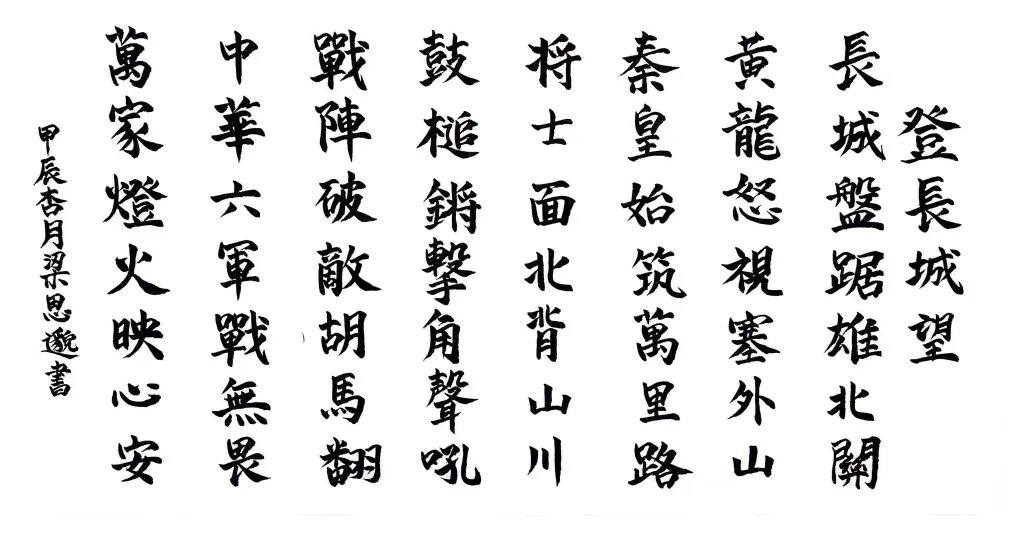 登長城望
長城盤踞雄北關
黄龍怒視塞外山
秦皇始筑萬里路
将士面北背山川
鼓槌鏘擊角聲吼
戰陣破敵胡馬翻
中華六軍戰無畏
萬家燈火映心安
甲辰杏月梁思邈書